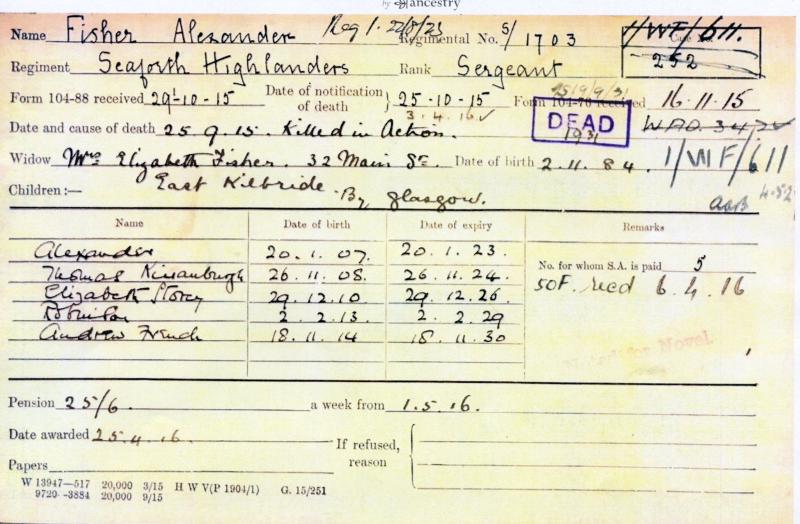 by ancestry
Name Fisher Alexander Reg 1. 22/8/23 Regimental No. S/1703 1/WF/611.
Regiment Seaforth Highlanders Rank Sergeant 252
Form 104-88 received 29-10-15 Date of notification of death 25-10-15 Form 104-76 received 16.11.15
3.4.16
DEAD
1931
Date and cause of death 25.9.15. Killed in Action.
Widow Mrs Elizabeth Fisher. 32 Main St. Date of birth 2.11.84. 1/WF/611
Children:— East Kilbride. By Glasgow.
Name Date of birth Date of expiry Remarks
Alexander 20.1.07. 20.1.23.
Thomas 26.11.08. 26.11.24. No. for whom S.A. is paid 5
Elizabeth Storey 29.12.10 29.12.26. 50F. recd 6.4.16
2.2.13. 2.2.29
Andrew French 18.11.14 18.11.30
Pension 25/6. a week from 1.5.16.
Date awarded 25.4.16. If refused, reason
Papers
W 13947—517 20,000 3/15 H W V(P 1904/1) G. 15/251
9720—3884 20,000 9/15